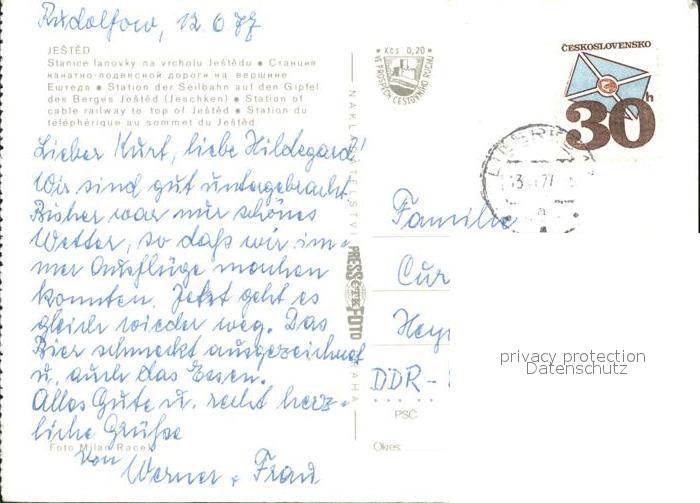 Rudolfov, 12.6.77
JEŠTĚD
Stanice lanovky na vrcholu Ještědu ● Станция
канатно-подвесной дороги на вершине
Ештеда ● Station der Seilbahn auf den Gipfel
des Berges Ještěd (Jeschken) ● Station of
cable railway to top of Ještěd ● Station du
téléphérique au sommet du Ještěd
Lieber Kurt, liebe Hildegard!
Wir sind gut untergebracht.
Bisher war nur schönes
Wetter, so daß wir im-
mer Ausflüge machen
konnten. Jetzt geht es
gleich wieder weg. Das
Bier schmeckt ausgezeichnet
u. auch das Essen.
Alles Gute u. recht herz-
liche Grüße
Von
Werner + Frau
Foto Milan Racek
NAKLADATELSTVÍ
PRESSFOTO
PRAHA
Kčs 0,20
VE PROSPĚCH CESTOVNÍHO RUCHU
ČESKOSLOVENSKO
30h
Familie
Cur
Hey
DDR-
PSČ
Okres:
privacy protection
Datenschutz